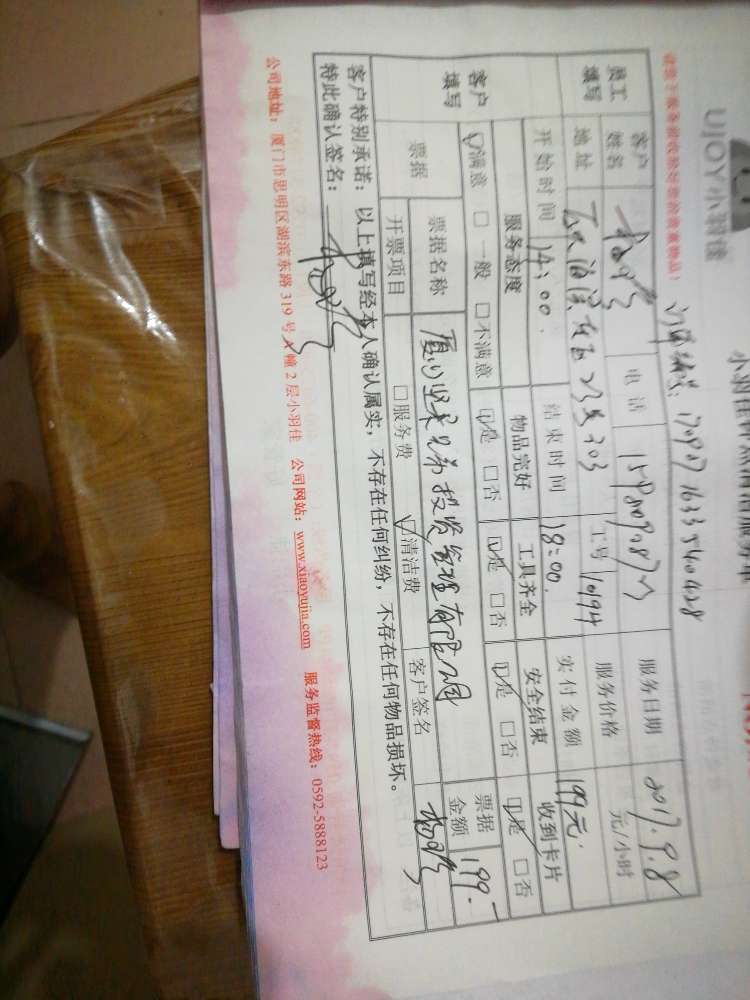 UJOY小羽佳
订单编号：1709071633540428
员工填写
客户姓名
电话
服务日期 2017.9.8
地址
303
工号 10194
服务价格 元/小时
开始时间 14:00.
结束时间 18:00.
实付金额 199元.
客户填写
服务态度 物品完好 工具齐全 安全结束 收到卡片
☑满意 □一般 □不满意 ☑是 □否 ☑是 □否 ☑是 □否 ☑是 □否
票据
票据名称
投资管理有限公司
票据金额 199.-
开票项目 □服务费 ☑清洁费 客户签名
客户特别承诺：以上填写经本人确认属实，不存在任何纠纷，不存在任何物品损坏。
特此确认签名：
公司地址：厦门市思明区湖滨东路 319 号 A 幢 2 层小羽佳 公司网站：www.xiaoyujia.com 服务监督热线：0592-5888123